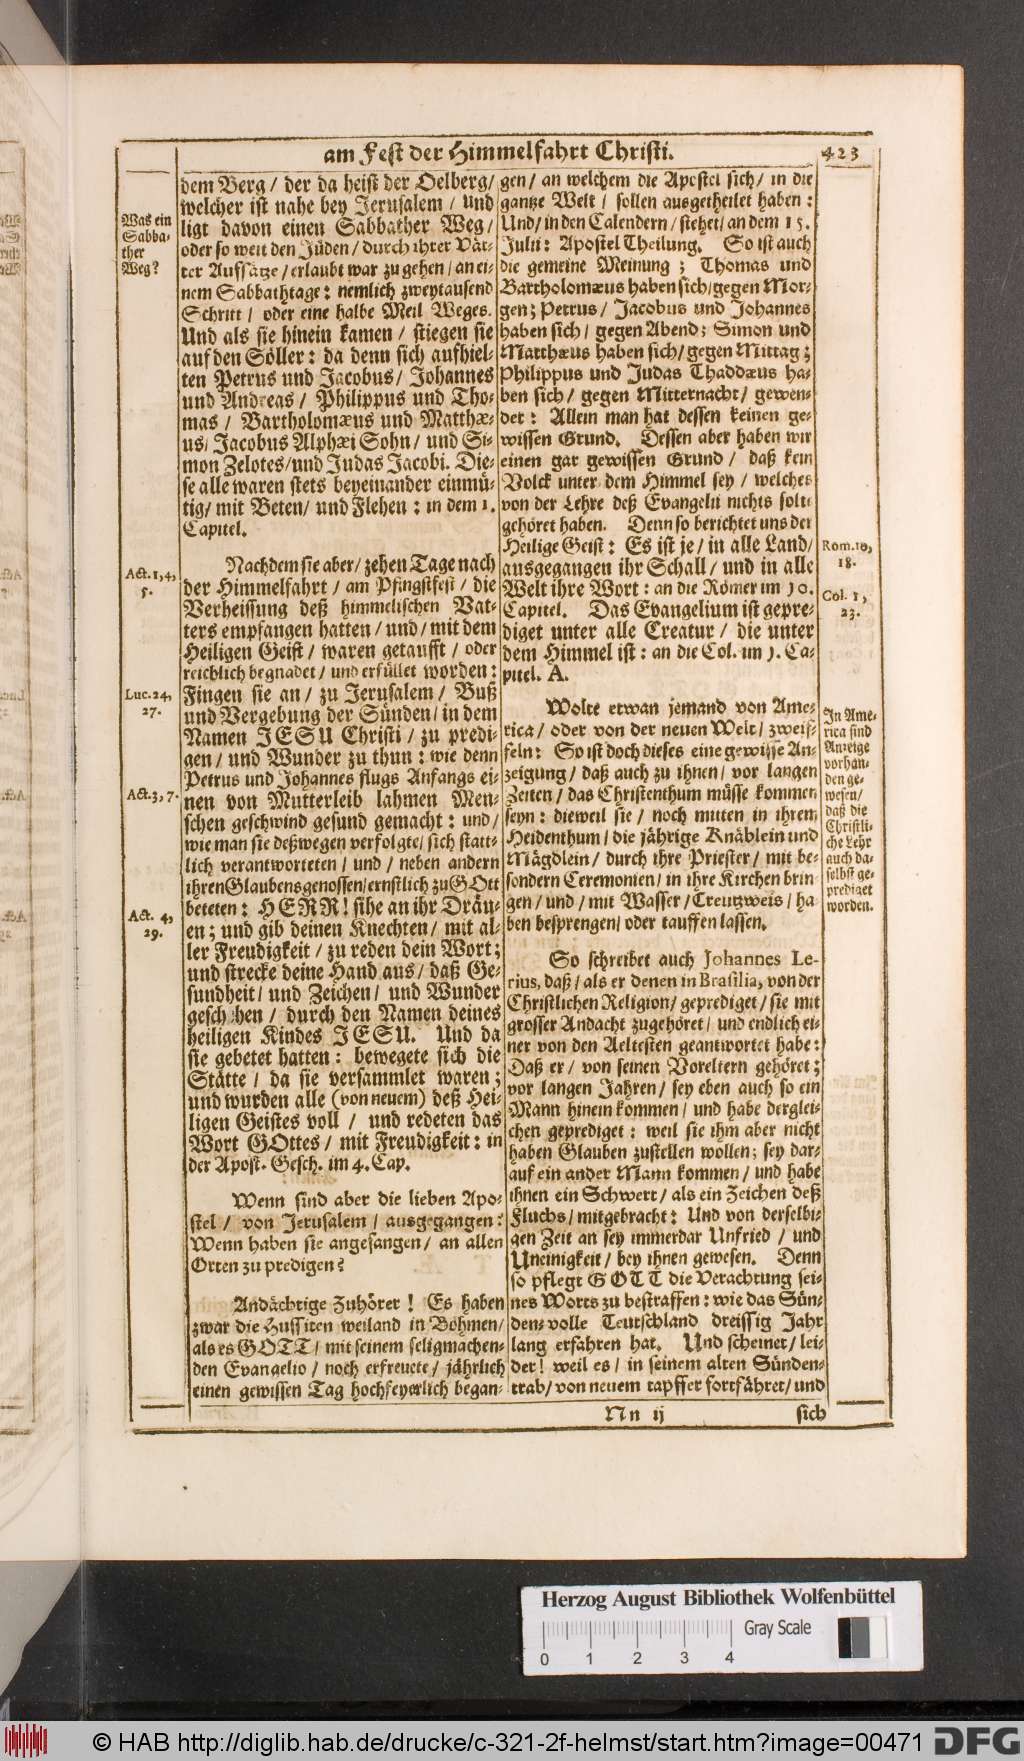 am Fest der Himmelfahrt Christi.
423
Was ein
Sabba-
ther
Weg?
dem Berg / der da heist der Oelberg/
welcher ist nahe bey Jerusalem / und
ligt davon einen Sabbather Weg/
oder so weit den Jüden / durch ihrer Vät-
ter Aufsätze / erlaubt war zu gehen / an ei-
nem Sabbathtage: nemlich zweytausend
Schritt / oder eine halbe Meil Weges.
Und als sie hinein kamen / stiegen sie
auf den Söller: da denn sich aufhiel-
ten Petrus und Jacobus/ Johannes
und Andreas / Philippus und Tho-
mas / Bartholomæus und Matthæ-
us/ Jacobus Alphæi Sohn / und Si-
mon Zelotes/und Judas Jacobi. Die-
se alle waren stets beyeinander einmü-
tig/ mit Beten/ und Flehen: in dem 1.
Capitel.
Act. 1, 4,
5.
Nachdem sie aber/ zehen Tage nach
der Himmelfahrt / am Pfingstfest / die
Verheissung deß himmelischen Vat-
ters empfangen hatten / und / mit dem
Heiligen Geist / waren getaufft / oder
reichlich begnadet / und erfüllet worden:
Luc. 24,
27.
Fingen sie an / zu Jerusalem / Buß
und Vergebung der Sünden / in dem
Namen JESU Christi / zu predi-
gen / und Wunder zu thun: wie denn
Petrus und Johannes flugs Anfangs ei-
Act. 3, 7.
nen von Mutterleib lahmen Men-
schen geschwind gesund gemacht: und /
wie man sie deßwegen verfolgte/ sich statt-
lich verantworteten / und / neben andern
ihren Glaubensgenossen/ernstlich zu GOtt
Act. 4,
29.
beteten: HERR! sihe an ihr Dräu-
en; und gib deinen Knechten / mit al-
ler Freudigkeit / zu reden dein Wort;
und strecke deine Hand aus / daß Ge-
sundheit / und Zeichen / und Wunder
geschehen / durch den Namen deines
heiligen Kindes JESU. Und da
sie gebetet hatten: bewegete sich die
Stätte / da sie versammlet waren;
und wurden alle (von neuem) deß Hei-
ligen Geistes voll / und redeten das
Wort GOttes / mit Freudigkeit: in
der Apost. Gesch. im 4. Cap.
Wenn sind aber die lieben Apo-
stel / von Jerusalem / ausgegangen?
Wenn haben sie angefangen / an allen
Orten zu predigen?
Andächtige Zuhörer! Es haben
zwar die Hussiten weiland in Böhmen/
als es GOTT / mit seinem seligmachen-
den Evangelio / noch erfreuete / jährlich
einen gewissen Tag hochfeyerlich began-
gen / an welchem die Apostel sich / in die
gantze Welt / sollen ausgetheilet haben:
Und/ in den Calendern / stehet/ an dem 15.
Julii: Apostel Theilung. So ist auch
die gemeine Meinung; Thomas und
Bartholomæus haben sich/ gegen Mor-
gen; Petrus / Jacobus und Johannes
haben sich / gegen Abend; Simon und
Matthæus haben sich/ gegen Mittag;
Philippus und Judas Thaddæus ha-
ben sich / gegen Mitternacht / gewen-
det: Allein man hat dessen keinen ge-
wissen Grund. Dessen aber haben wir
einen gar gewissen Grund / daß kein
Volck unter dem Himmel sey / welches
von der Lehre deß Evangelii nichts solte
gehöret haben. Denn so berichtet uns der
Heilige Geist: Es ist je / in alle Land/
ausgegangen ihr Schall / und in alle
Welt ihre Wort: an die Römer im 10.
Capitel. Das Evangelium ist gepre-
diget unter alle Creatur / die unter
dem Himmel ist: an die Col. im 1. Ca-
pitel. A.
Rom. 10,
18.
Col. 1,
23.
Wolte etwan jemand von Ame-
rica / oder von der neuen Welt / zweif-
feln: So ist doch dieses eine gewisse An-
zeigung / daß auch zu ihnen / vor langen
Zeiten / das Christenthum müsse kommen
seyn: dieweil sie / noch mitten in ihrem
Heidenthum / die jährige Knäblein und
Mägdlein / durch ihre Priester / mit be-
sondern Ceremonien / in ihre Kirchen brin-
gen / und / mit Wasser / Creutzweis / ha-
ben besprengen/ oder tauffen lassen.
In Ame-
rica sind
Anzeige
vorhan-
den ge-
wesen/
daß die
Christli-
che Lehr
auch da-
selbst ge-
prediget
worden.
So schreibet auch Johannes Le-
rius, daß / als er denen in Brasilia, von der
Christlichen Religion / geprediget / sie mit
grosser Andacht zugehöret / und endlich ei-
ner von den Aeltesten geantwortet habe:
Daß er / von seinen Voreltern gehöret;
vor langen Jahren / sey eben auch so ein
Mann hinein kommen / und habe derglei-
chen geprediget: weil sie ihm aber nicht
haben Glauben zustellen wollen; sey dar-
auf ein ander Mann kommen / und habe
ihnen ein Schwert / als ein Zeichen deß
Fluchs / mitgebracht: Und von derselbi-
gen Zeit an sey immerdar Unfried / und
Uneinigkeit / bey ihnen gewesen. Denn
so pflegt GOTT die Verachtung sei-
nes Worts zu bestraffen: wie das Sün-
den-volle Teutschland dreissig Jahr
lang erfahren hat. Und scheinet / lei-
der! weil es / in seinem alten Sünden-
trab / von neuem tapffer fortfähret / und
Nn ij
sich
Herzog August Bibliothek Wolfenbüttel
Gray Scale
0 1 2 3 4
© HAB http://diglib.hab.de/drucke/c-321-2f-helmst/start.htm?image=00471
DFG